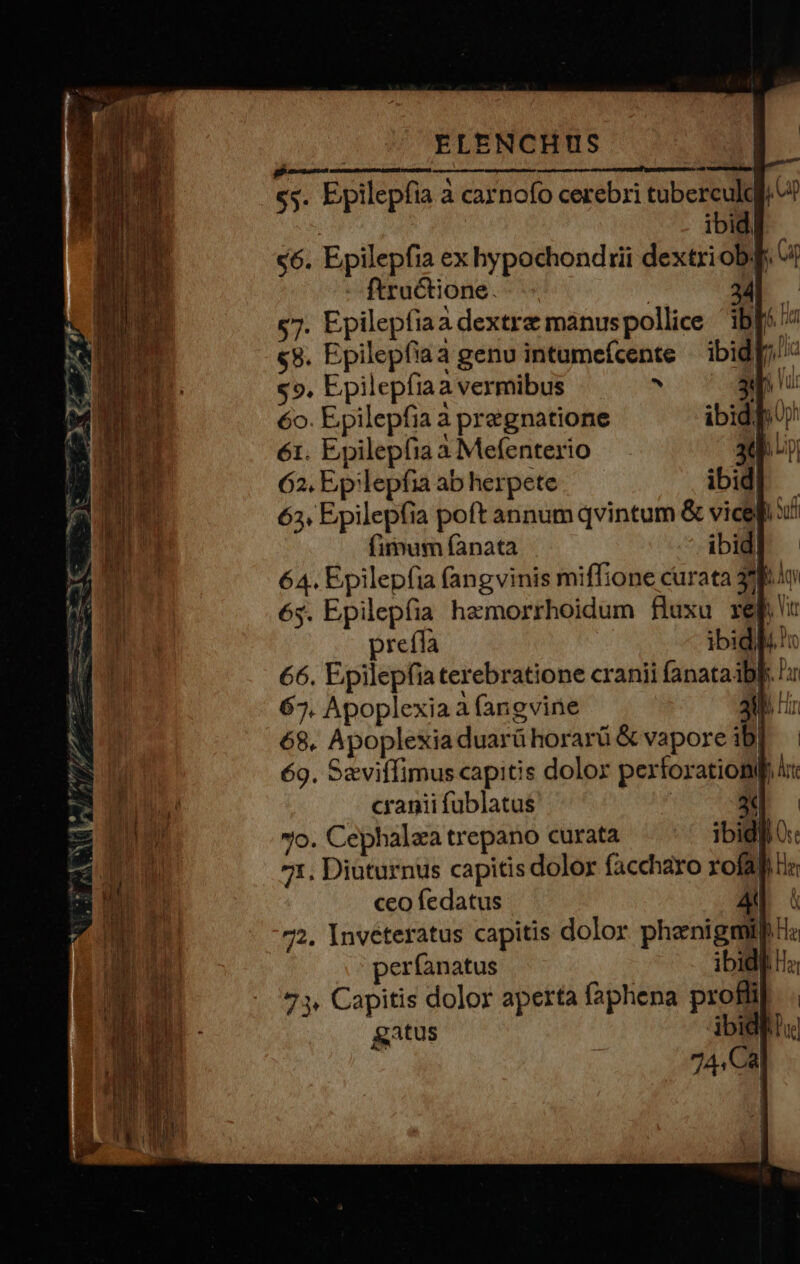 ELENCHUS
55. Epilepſia à carnoſo cerebri tuberculo
ibid.
56. Epilepſia ex hypochondrii dextri ob-
ſtructione. 34
57. Epilepſia à dextræ manus pollice ib
58. Epilepſia à genu intumeſcente ibid
59. Epilepſia à vermibus
60. Epilepſia à prægnatione ibid.
61. Epilepſia à Meſenterio
62. Epilepſia ab herpete ibid
63. Epilepſia poſt annum qvintum & vice-
ſimum ſanata ibid
64. Epilepſia ſangvinis miſſione curata
65. Epilepſia hæmorrhoidum fluxu re-
preſſa ibid
66. Epilepſia terebratione cranii ſanata ib
67. Apoplexia à ſangvine
68. Apoplexia duarū horarū & vapore ib
69. Sæviſſimus capitis dolor perforatione
cranii ſublatus
70. Cephalæa trepano curata ibid
71. Diuturnus capitis dolor ſaccharo roſa-
ceo ſedatus
72. Inveteratus capitis dolor phænigmi
perſanatus ibid
73. Capitis dolor aperta ſaphena profli-
gatus ibid
74. Ca